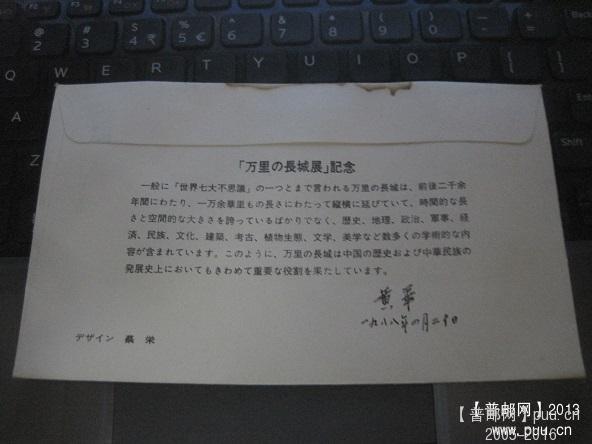 @ # $ ₹ % ^ & * ( ) _ +
2 3 4 € 5 6 7 8 9 0 - =
Q W E R T Y U I O P { } [ ]
Shift
「万里の長城展」記念
一般に「世界七大不思議」の一つとまで言われる万里の長城は、前後二千余
年間にわたり、一万余華里もの長さにわたって縦横に延びていて、時間的な長
さと空間的な大きさを誇っているばかりでなく、歴史、地理、政治、軍事、経
済、民族、文化、建築、考古、植物生態、文学、美学など数多くの学術的な内
容が含まれています。このように、万里の長城は中国の歴史および中華民族の
発展史上においてもきわめて重要な役割を果たしています。
黄華
一九八八年
デザイン 栄
【普邮网】2013
【普邮网】puu.cn
www.puu.cn